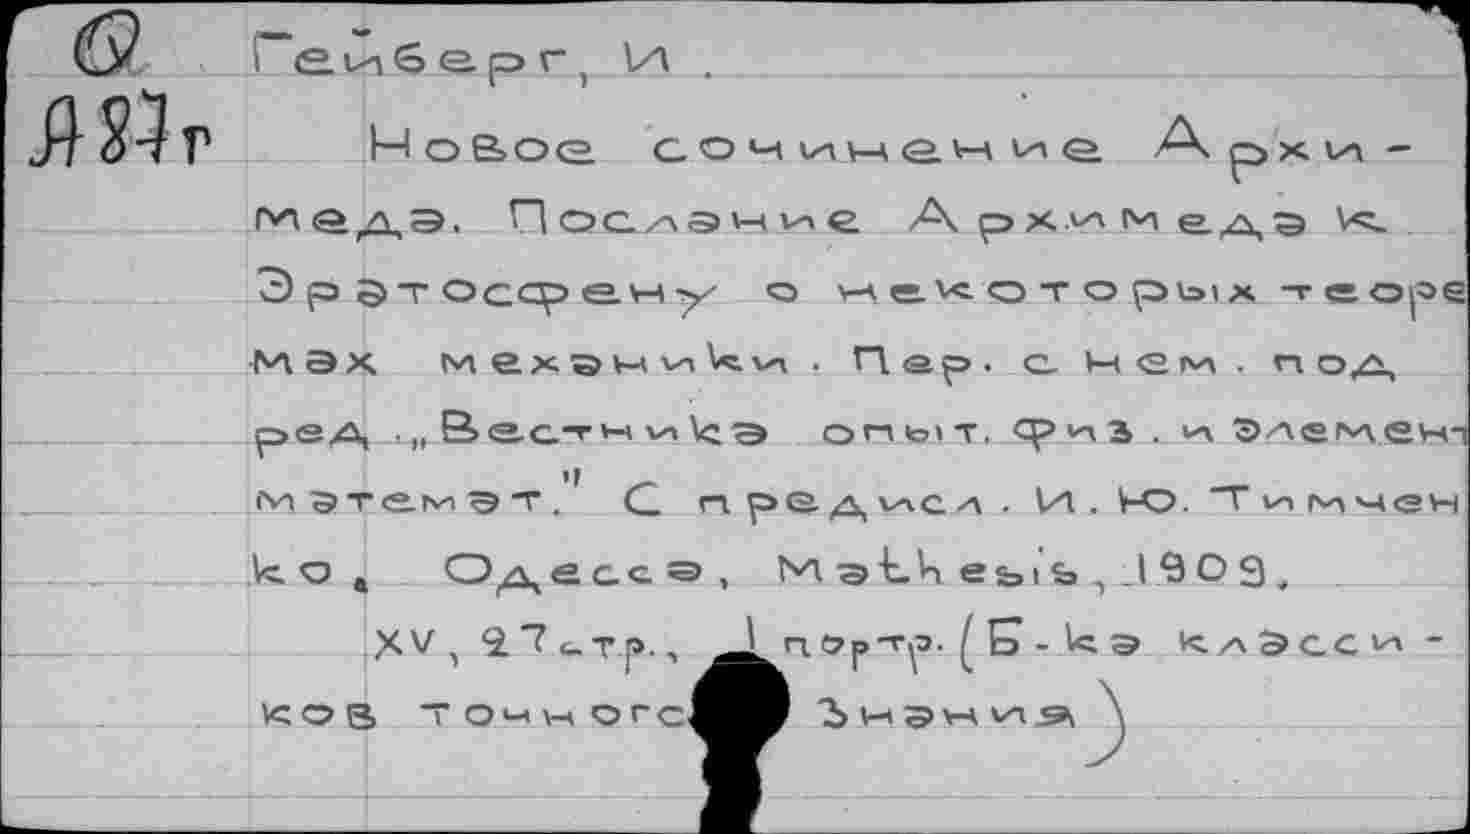 Гейберг, И.
Л87г
Новое сочинение Архи-
меда. Послание Архимеда к
Эратосфену о некоторых теоре
мах механики. Пер. с нем. под
ред. „Вестника опыт. физ. и Элемен-
математ." С предисл. И. Ю. Тимчен
ко. Одесса, Mathesis, 1909.
XV, 27 стр., 1 портр. (Б-ка класси-
ков точного Знания)